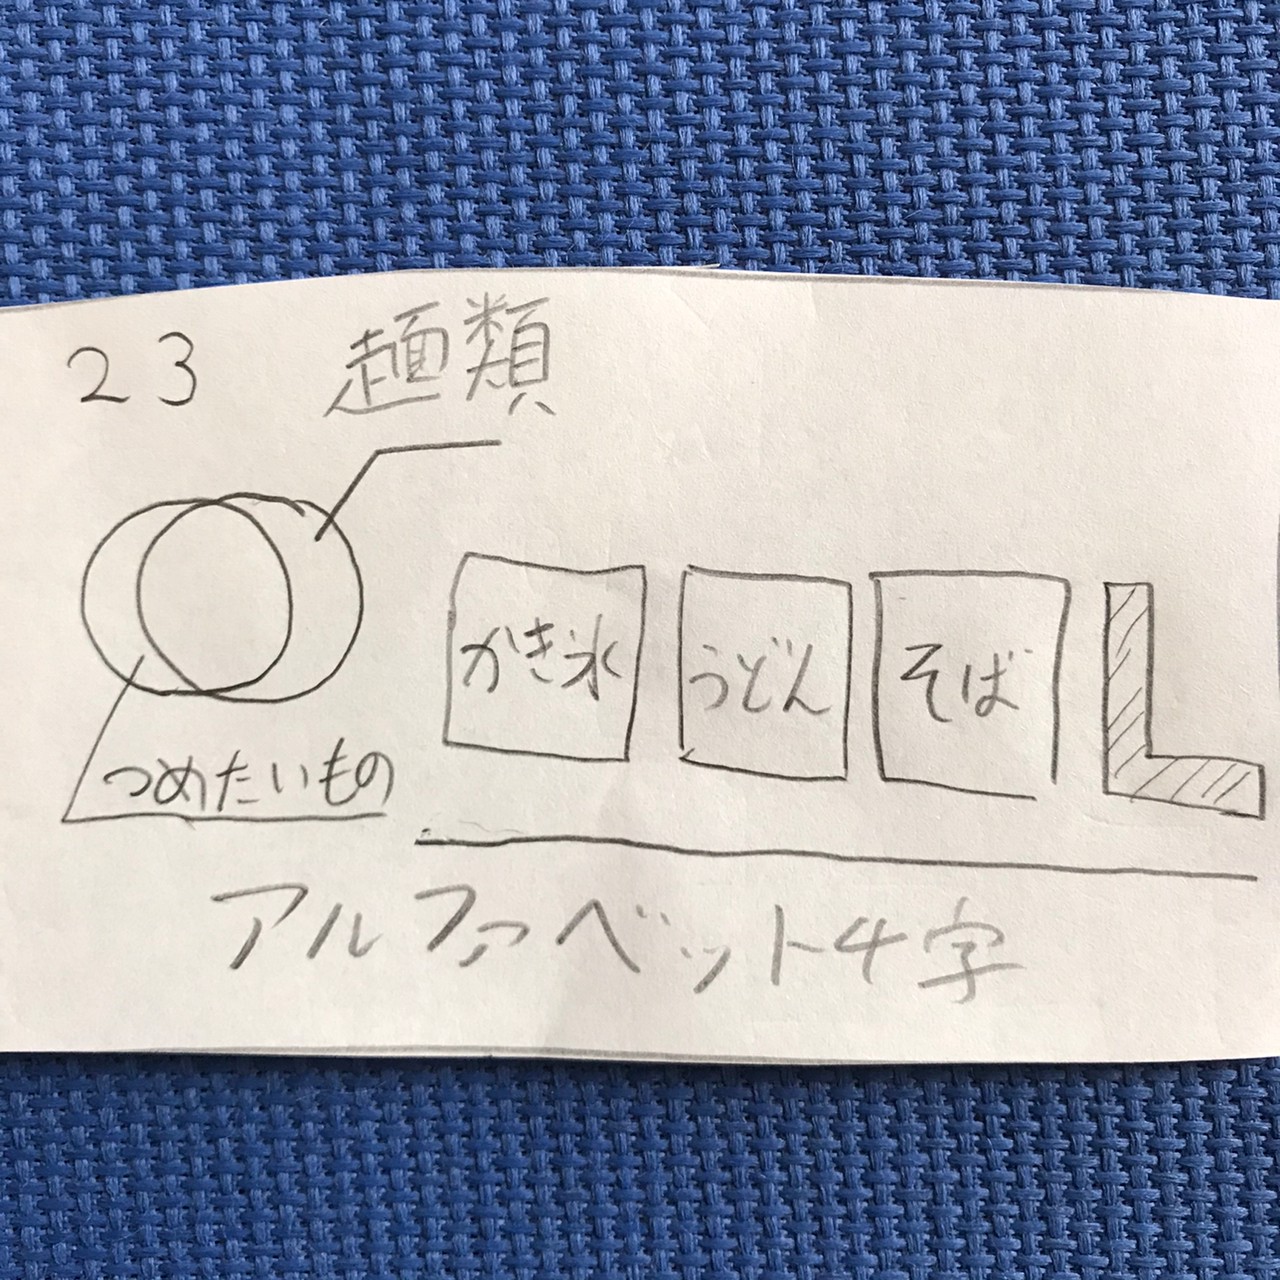 23 麺類
つめたいもの
かき氷 うどん そば L
アルファベット4字